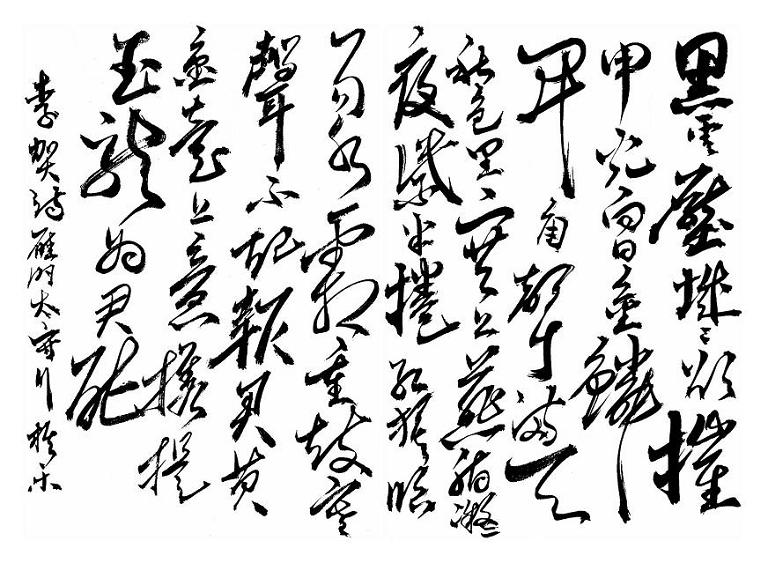 黑雲壓城〻欲摧
甲光向日金鱗
開角聲滿天
秋色里塞上燕脂凝
夜紫半捲紅旗臨
易水霜重鼓寒
聲不起報君黃
金臺上意攜提
玉龍為君死
李賀詩雁門太守行